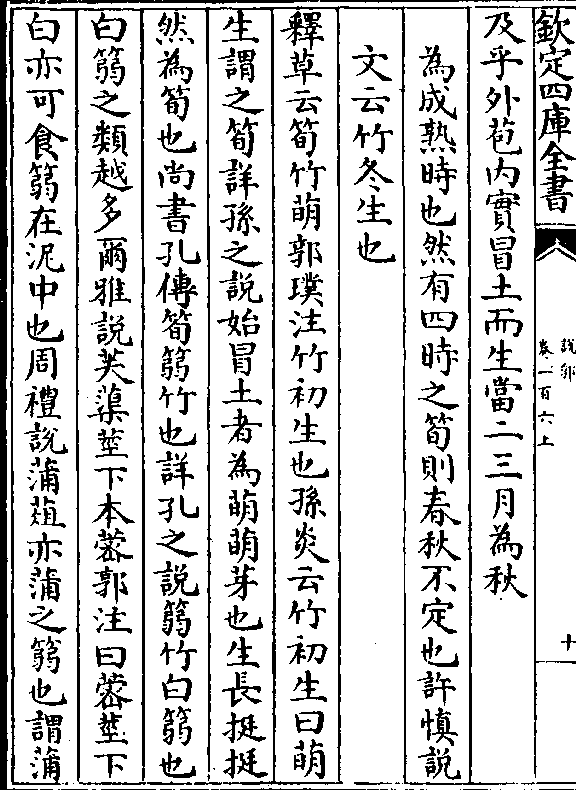 欽定四庫全書
説郛
卷一百六上
十
及乎外苞内實冒土而生當二三月為秋
為成熟時也然有四時之筍則春秋不定也許慎説
文云竹冬生也
釋草云筍竹萌郭璞注竹初生也孫炎云竹初生曰萌
生謂之筍詳孫之説始冒土者為萌萌芽也生長挺挺
然為筍也尚書孔傳筍篛竹也詳孔之説篛竹白篛也
白篛之類越多爾雅説芙蕖莖下本蔤郭注曰蔤莖下
白亦可食篛在泥中也周禮説蒲蒩亦蒲之篛也謂蒲